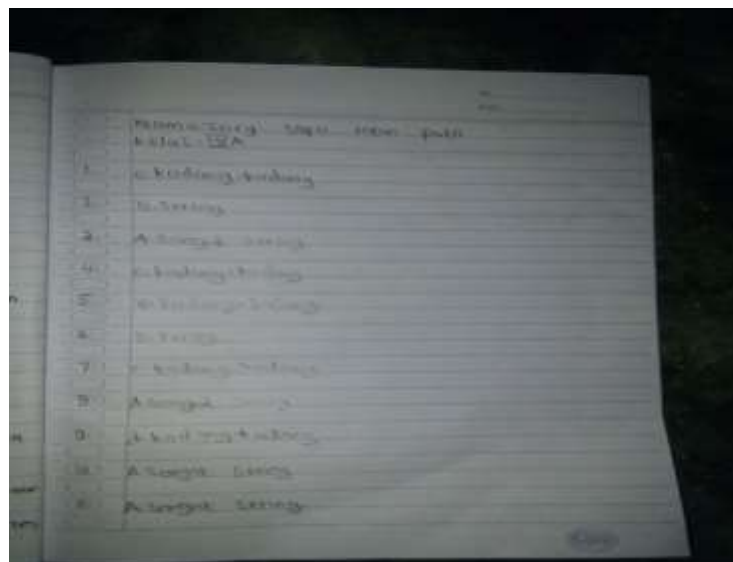 Kelas: IX A
1. c. kadang-kadang
2. B. Sering
3. A. Sangat sering
4. c. kadang-kadang
5. c. kadang-kadang
6. B. Sering
7. c. kadang-kadang
8. A. Sangat
9. kadang-kadang
10. A. Sangat Sering
A. Sangat Sering